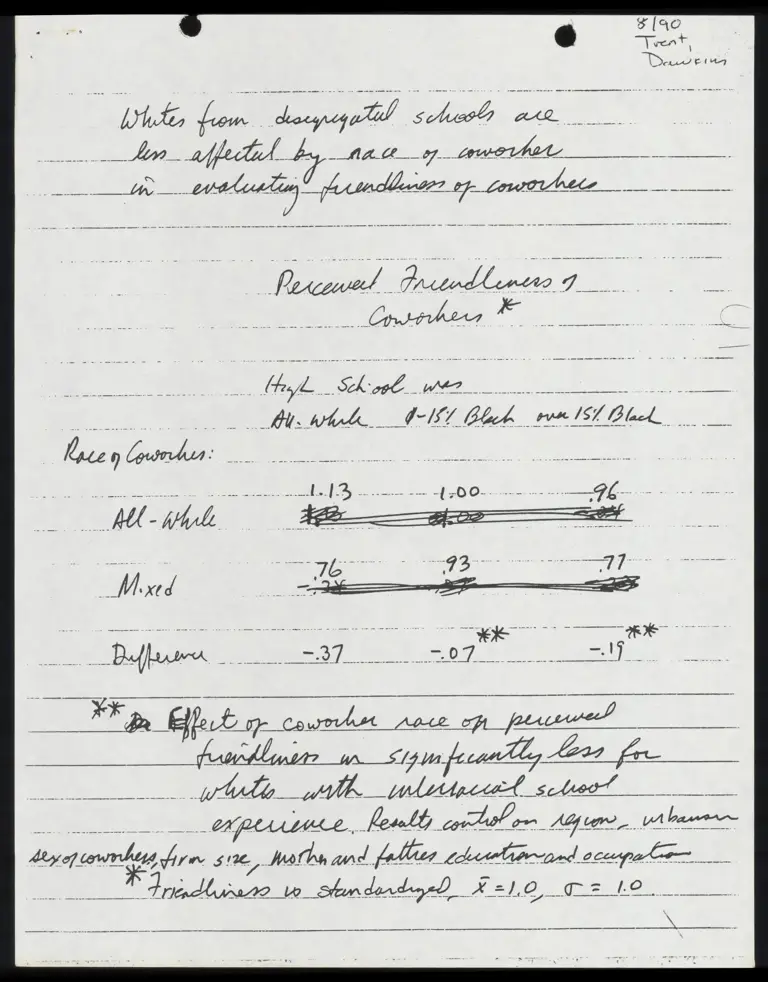 8/90
Trent,
Dawkins
Whites from desegregated schools are
less affected by race of coworker
in evaluating friendliness of coworkers
Perceived Friendliness of
Coworkers *
High School was
All-White 1-15% Black over 15% Black
Race of Coworkers:
1.13 1.00 .96
All-White
.76 .93 .77
Mixed
Difference -.37 -.07** -.19**
** Effect of coworker race on perceived
friendliness is significantly less for
whites with interracial school
experience. Results control on region, urbanism
sex of coworkers, firm size, mother and fathers education and occupation
* Friendliness is standardized, x̄=1.0, σ = 1.0